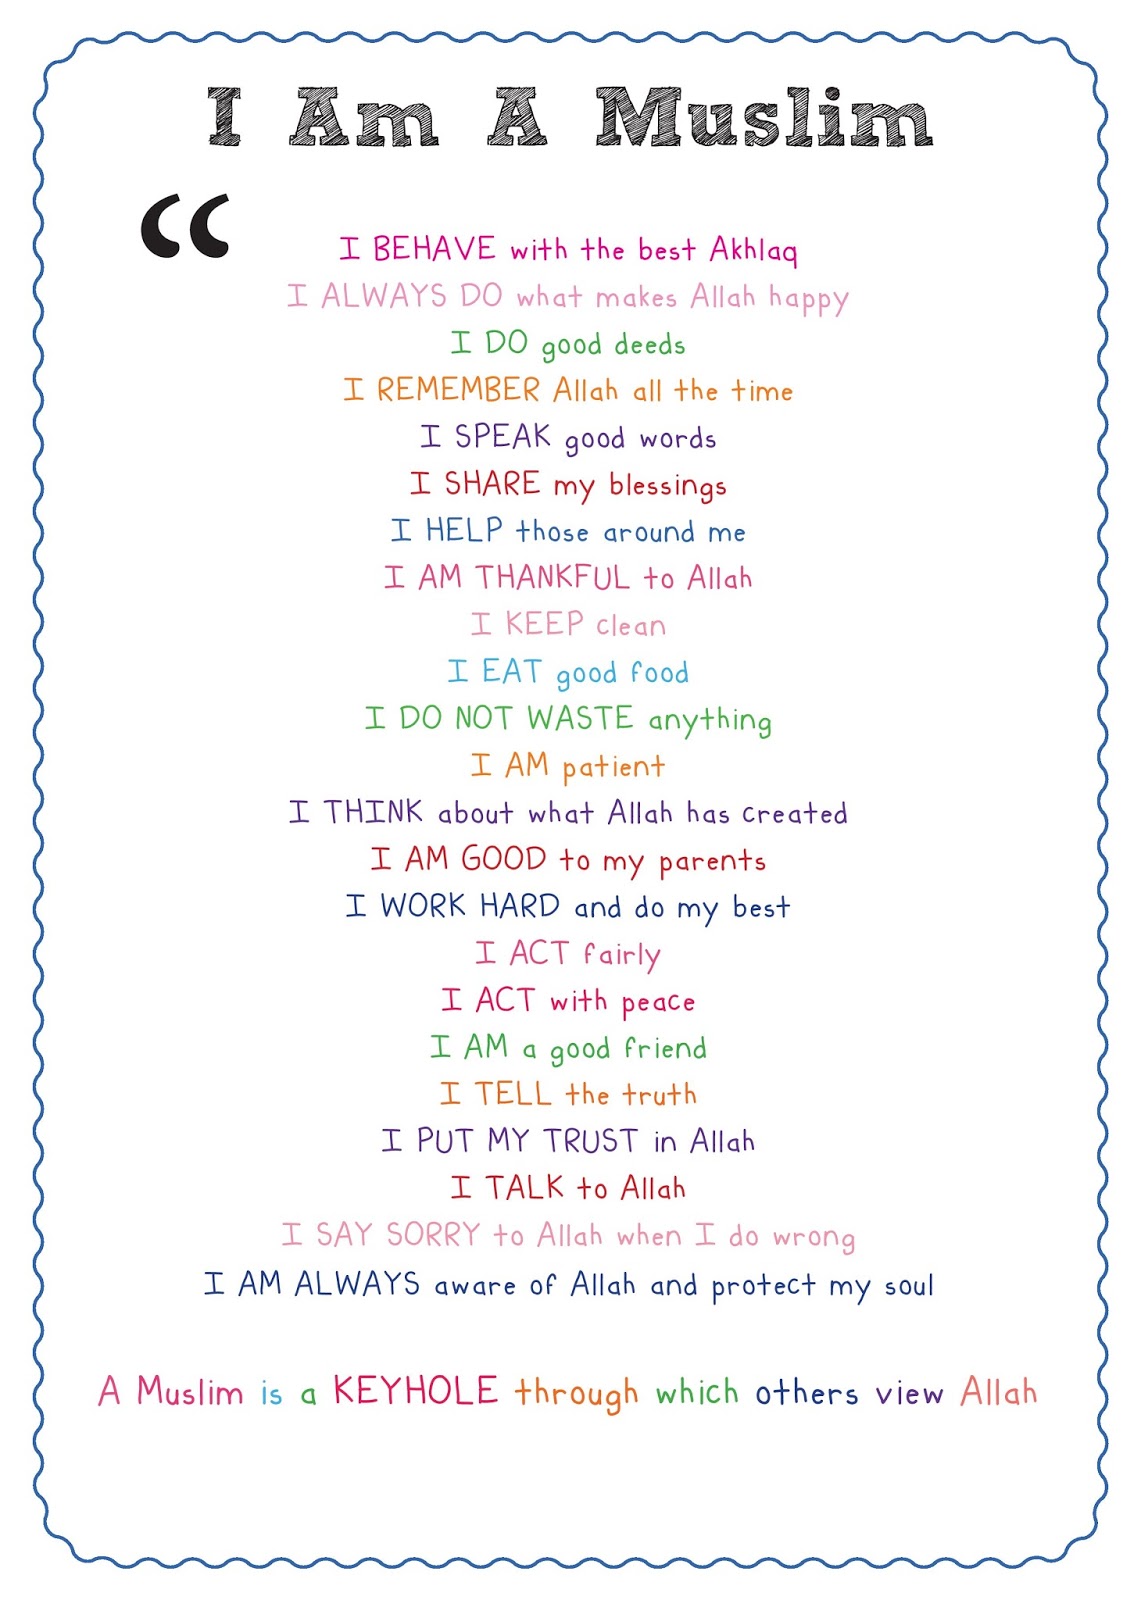 I Am A Muslim
“
I BEHAVE with the best Akhlaq
I ALWAYS DO what makes Allah happy
I DO good deeds
I REMEMBER Allah all the time
I SPEAK good words
I SHARE my blessings
I HELP those around me
I AM THANKFUL to Allah
I KEEP clean
I EAT good food
I DO NOT WASTE anything
I AM patient
I THINK about what Allah has created
I AM GOOD to my parents
I WORK HARD and do my best
I ACT fairly
I ACT with peace
I AM a good friend
I TELL the truth
I PUT MY TRUST in Allah
I TALK to Allah
I SAY SORRY to Allah when I do wrong
I AM ALWAYS aware of Allah and protect my soul
A Muslim is a KEYHOLE through which others view Allah